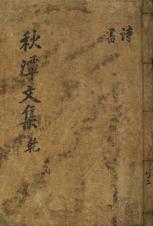 詩
書
秋潭文集 乾